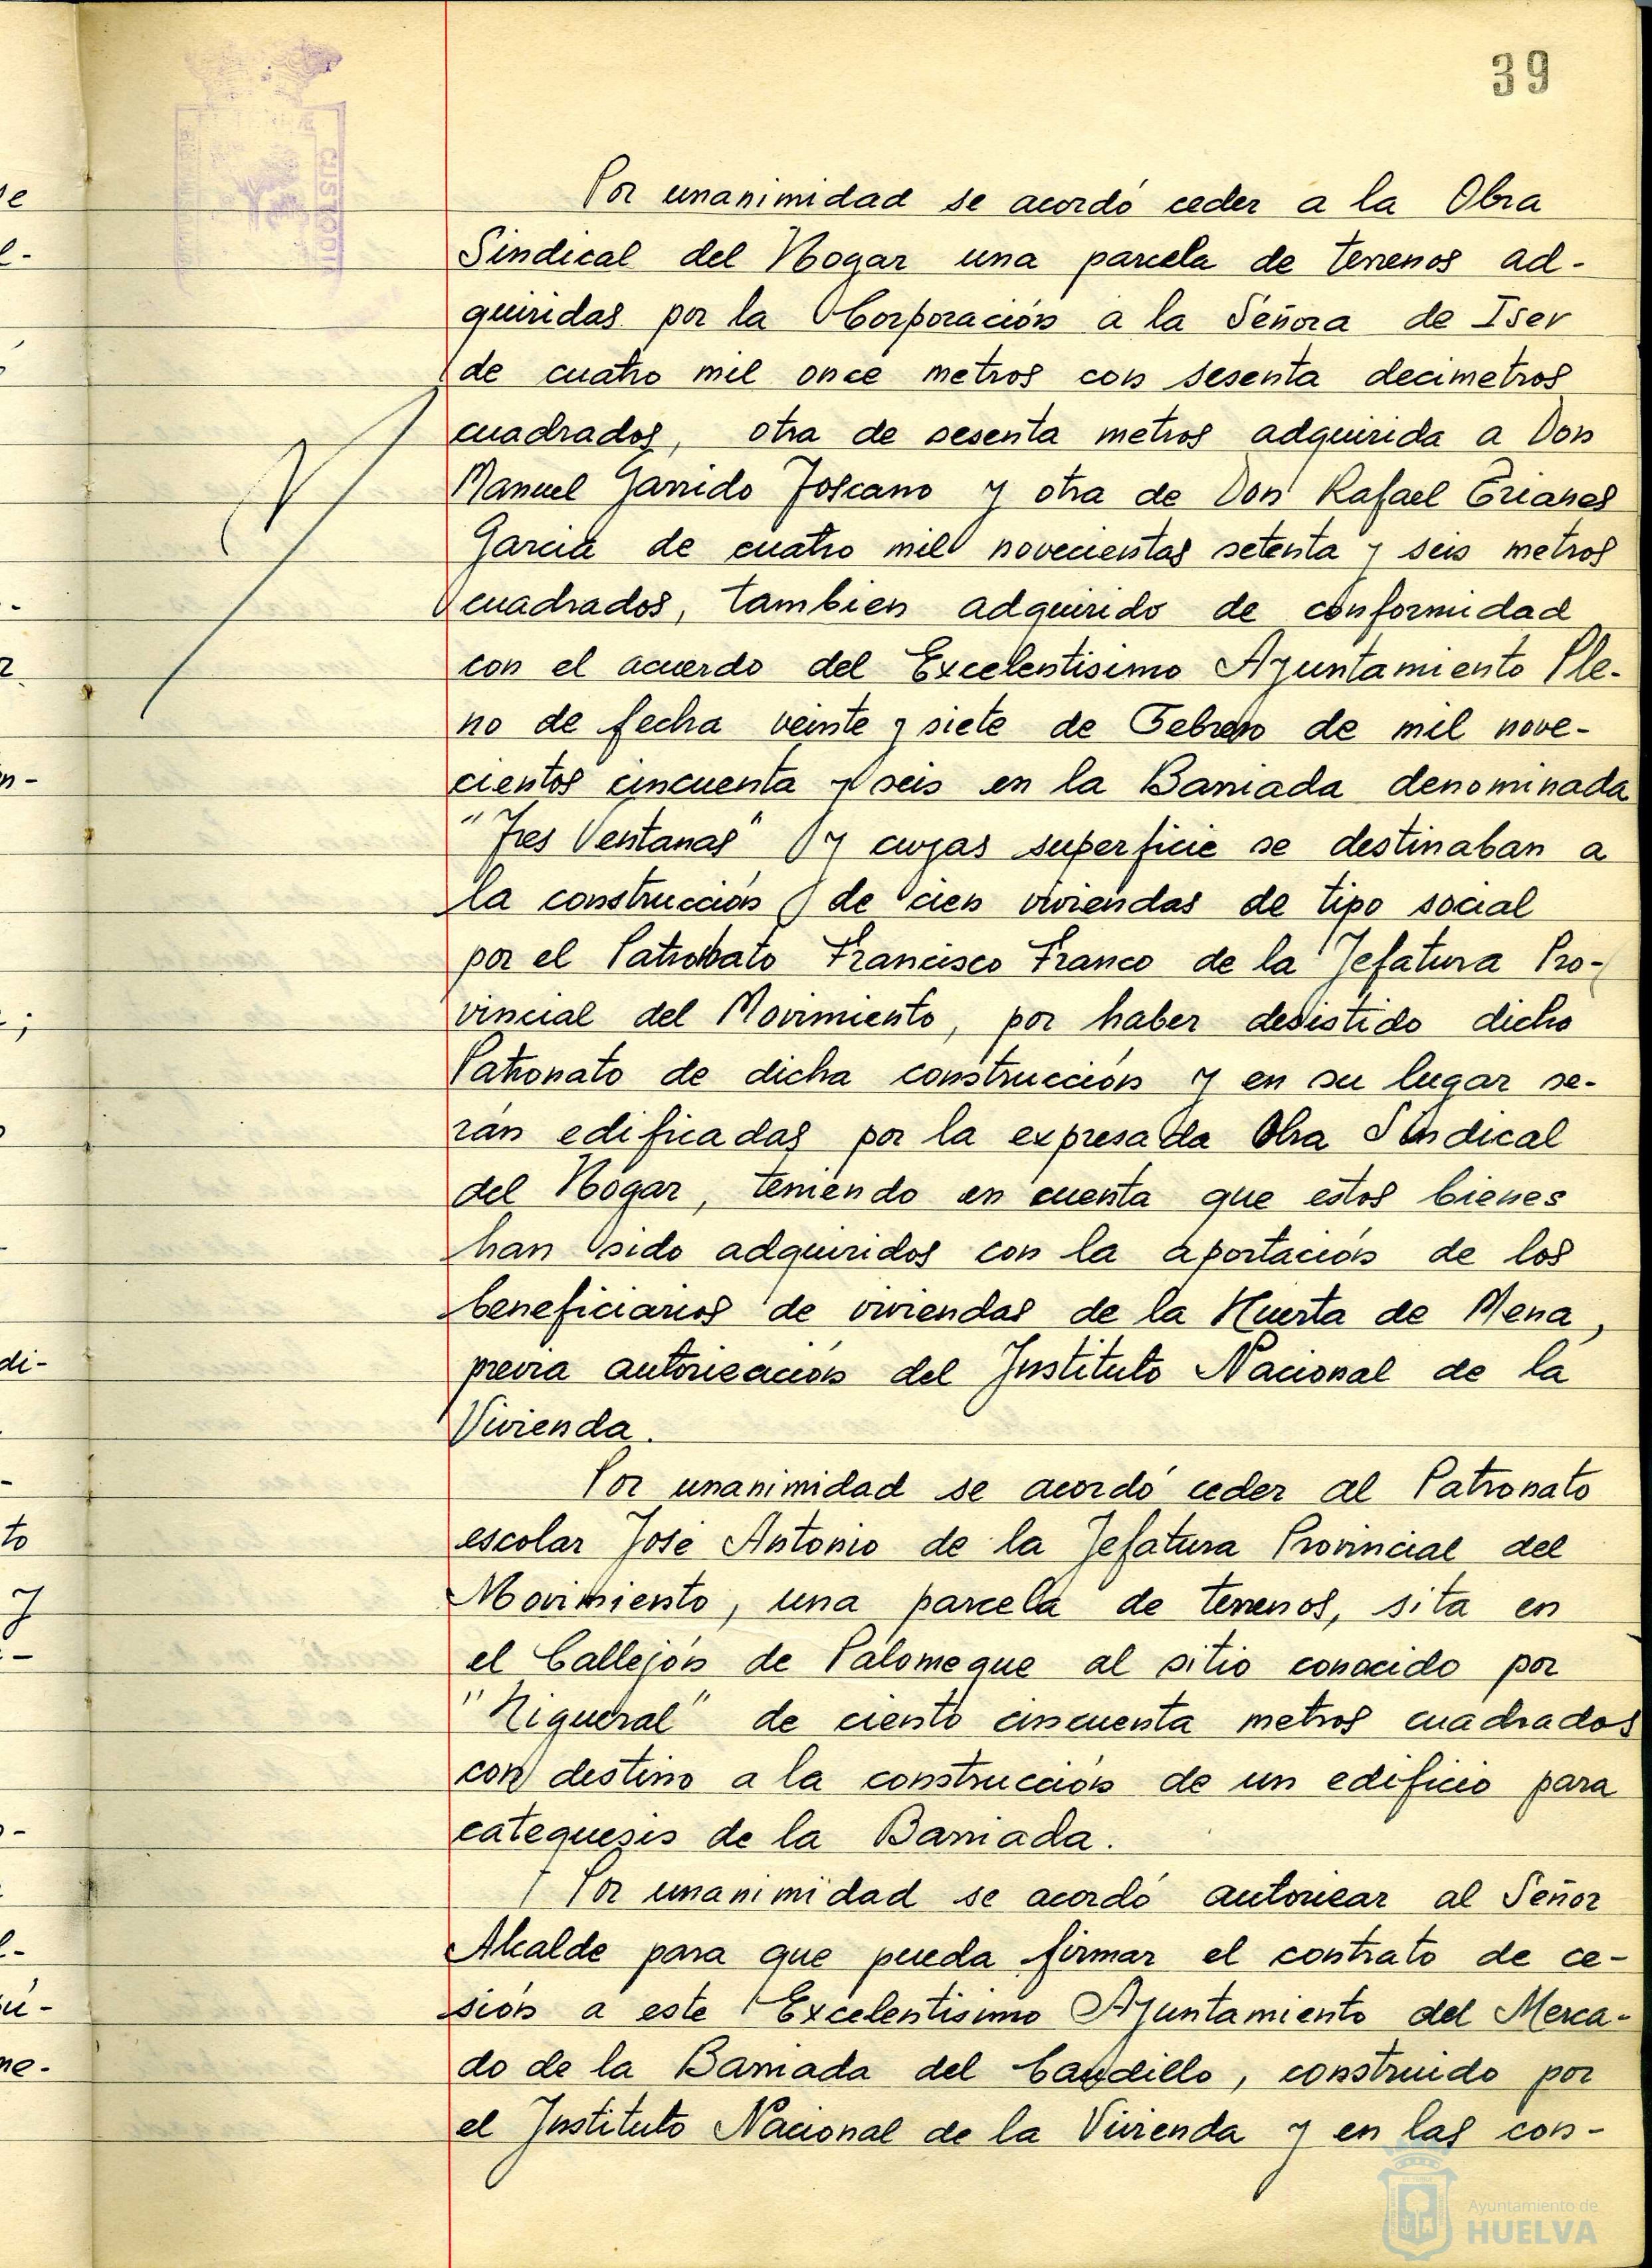 39
Por unanimidad se acordó ceder a la Obra
Sindical del Hogar una parcela de terrenos ad-
quiridas por la Corporación a la Señora de Iser
de cuatro mil once metros con sesenta decimetros
cuadrados, otra de sesenta metros adquirida a Don
Manuel Garrido Toscano y otra de Don Rafael
Garcia de cuatro mil novecientas setenta y seis metros
cuadrados, tambien adquirido de conformidad
con el acuerdo del Excelentisimo Ayuntamiento Ple-
no de fecha veinte y siete de Febrero de mil nove-
cientos cincuenta y seis en la Barriada denominada
"Tres Ventanas" y cuyas superficie se destinaban a
la construcción de cien viviendas de tipo social
por el Patronato Francisco Franco de la Jefatura Pro-
vincial del Movimiento, por haber desistido dicho
Patronato de dicha construcción y en su lugar se-
rán edificadas por la expresada Obra Sindical
del Hogar, teniendo en cuenta que estos bienes
han sido adquiridos con la aportación de los
beneficiarios de viviendas de la Huerta de Mena,
previa autorización del Instituto Nacional de la
Vivienda.
Por unanimidad se acordó ceder al Patronato
escolar José Antonio de la Jefatura Provincial del
Movimiento, una parcela de terrenos, sita en
el Callejón de Palomeque al sitio conocido por
"Higueral" de ciento cincuenta metros cuadrados
con destino a la construcción de un edificio para
catequesis de la Barriada.
Por unanimidad se acordó autorizar al Señor
Alcalde para que pueda firmar el contrato de ce-
sión a este Excelentisimo Ayuntamiento del Merca-
do de la Barriada del Caudillo, construido por
el Instituto Nacional de la Vivienda y en las con-
Ayuntamiento de
HUELVA